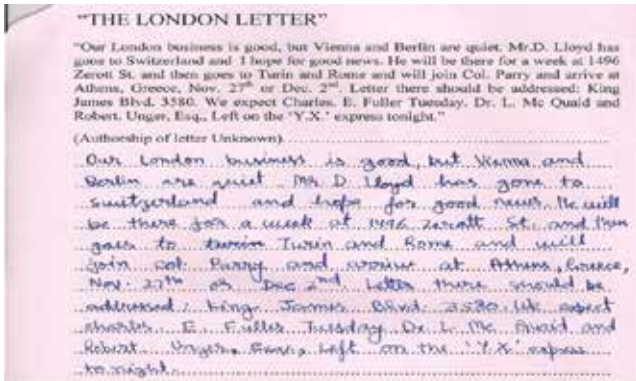 "THE LONDON LETTER"
"Our London business is good, but Vienna and Berlin are quiet. Mr.D. Lloyd has
gone to Switzerland and I hope for good news. He will be there for a week at 1496
Zerott St. and then goes to Turin and Rome and will join Col. Parry and arrive at
Athens, Greece, Nov. 27th or Dec. 2nd. Letter there should be addressed: King
James Blvd. 3580. We expect Charles. E. Fuller Tuesday. Dr. L. Mc Quaid and
Robert. Unger, Esq., Left on the 'Y.X.' express tonight."
(Authorship of letter Unknown)
Our London business is good, but Vienna and
Berlin are quiet. Mr D Lloyd has gone to
switzerland and hope for good news. He will
be there for a week at 1496 Zerott St. and then
goes to turin Turin and Rome and will
join col. Parry and arrive at Athens, Greece,
Nov. 27th or Dec 2nd Letter there should be
addressed: King James Blvd. 3580 We expect
charles. E. Fuller Tuesday. Dr. L. Mc Quaid and
Robert. Unger, Esq., Left on the 'Y.X' express
to night.